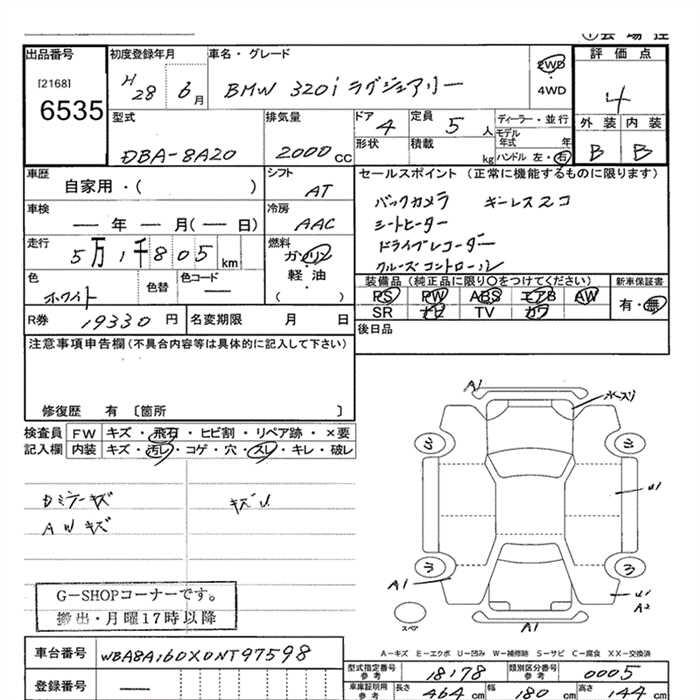 出品番号 初度登録年月 車名・グレード 評価点
[2168] 6535 H28 6月 BMW 320i ラグジュアリー 2WD 4WD 4
外装 内装
B B
型式 排気量 ドア 4 定員 5人 ディーラー・並行
モデル年式 年
DBA-8A20 2000cc 形状 積載 kg ハンドル 左・右
車歴 シフト セールスポイント (正常に機能するものに限ります)
自家用・( ) AT バックカメラ キーレス2コ
車検 冷房 シートヒーター
— 年 — 月(— 日) AAC ドライブレコーダー
走行 燃料 クルーズコントロール
5万1千805km ガソリン
軽・油
( )
色 色替 色コード 装備品 (純正品に限り○をつけてください) 新車保証書
ホワイト — PS PW ABS エアB AW 有・無
SR ナビ TV カワ
R券 19330円 名変期限 月 日 後日品
注意事項申告欄(不具合内容等は具体的に記入して下さい)
修復歴 有 〔箇所 〕
検査員 FW キズ・飛石・ヒビ割・リペア跡・×要
記入欄 内装 キズ・汚レ・コゲ・穴・スレ・キレ・破レ
Dミラーキズ キズU
AWキズ
G-SHOPコーナーです。
搬出・月曜17時以降
A1
U1
A1
U1
A2
スペア
A1
A-キズ E-エクボ U-凹み W-補修跡 S-サビ C-腐食 XX-交換済
車台番号 WBA8A16OX0NT97598
型式指定番号 参考 18178 類別区分番号 参考 0005
登録番号 — 車庫証明用 参考 長さ 464cm 幅 180cm 高さ 144cm